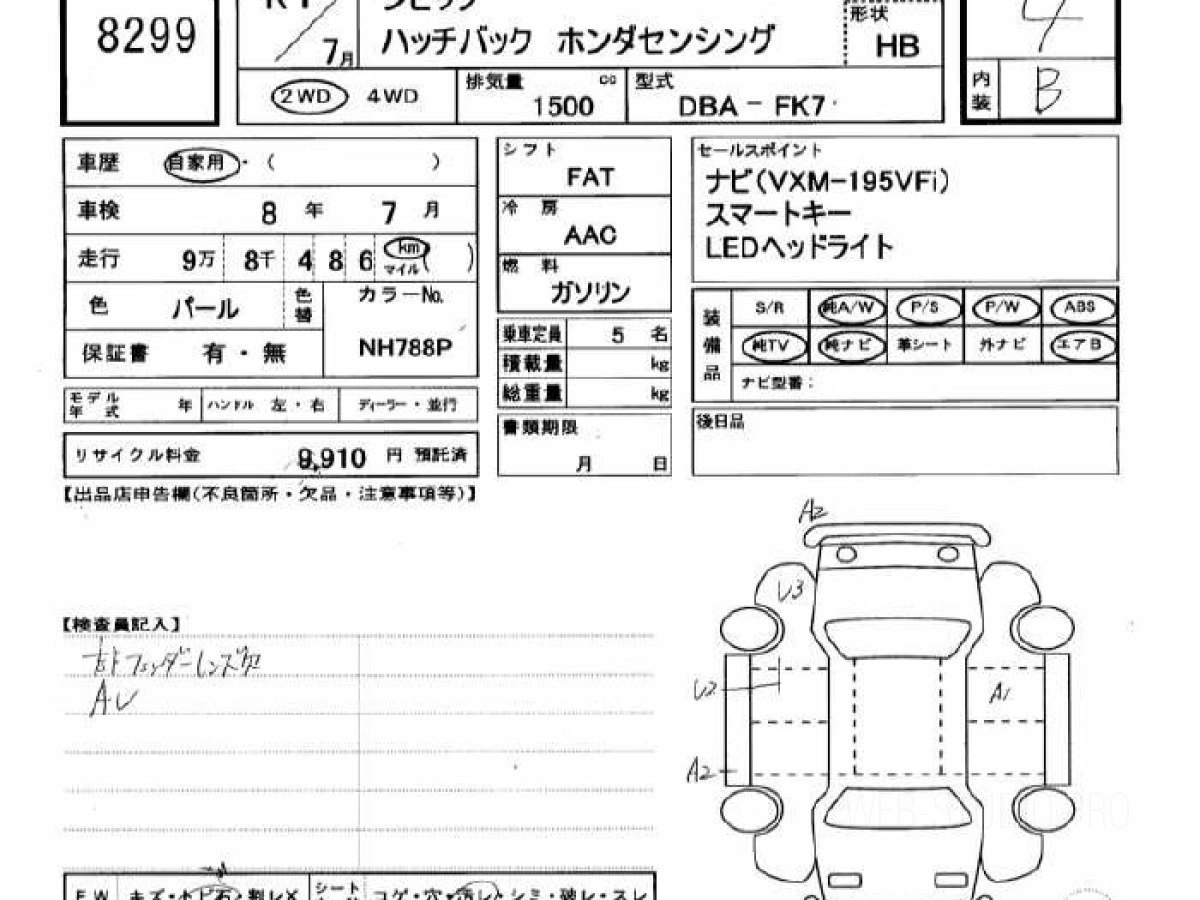 8299
7月
ハッチバック ホンダセンシング
形状
HB
4
2WD 4WD
排気量 cc
1500
型式
DBA - FK7
内装
B
車歴 自家用・( )
車検 8 年 7 月
走行 9万 8千 4 8 6 km マイル ( )
色 パール 色替
カラーNo.
NH788P
保証書 有・無
モデル年式 年 ハンドル 左・右 ディーラー・並行
リサイクル料金 9,910 円 預託済
シフト
FAT
冷房
AAC
燃料
ガソリン
乗車定員 5 名
積載量 kg
総重量 kg
書類期限
月 日
セールスポイント
ナビ(VXM-195VFi)
スマートキー
LEDヘッドライト
装備品
S/R 純A/W P/S P/W ABS
純TV 純ナビ 革シート 外ナビ エアB
ナビ型番:
後日品
【出品店申告欄(不良箇所・欠品・注意事項等)】
【検査員記入】
フェンダーレンズ欠
A2
A1
A2
WEB-
PRO
FW キズ・トビ石・割レX
シート コゲ・穴・汚レ・シミ・破レ・スレ